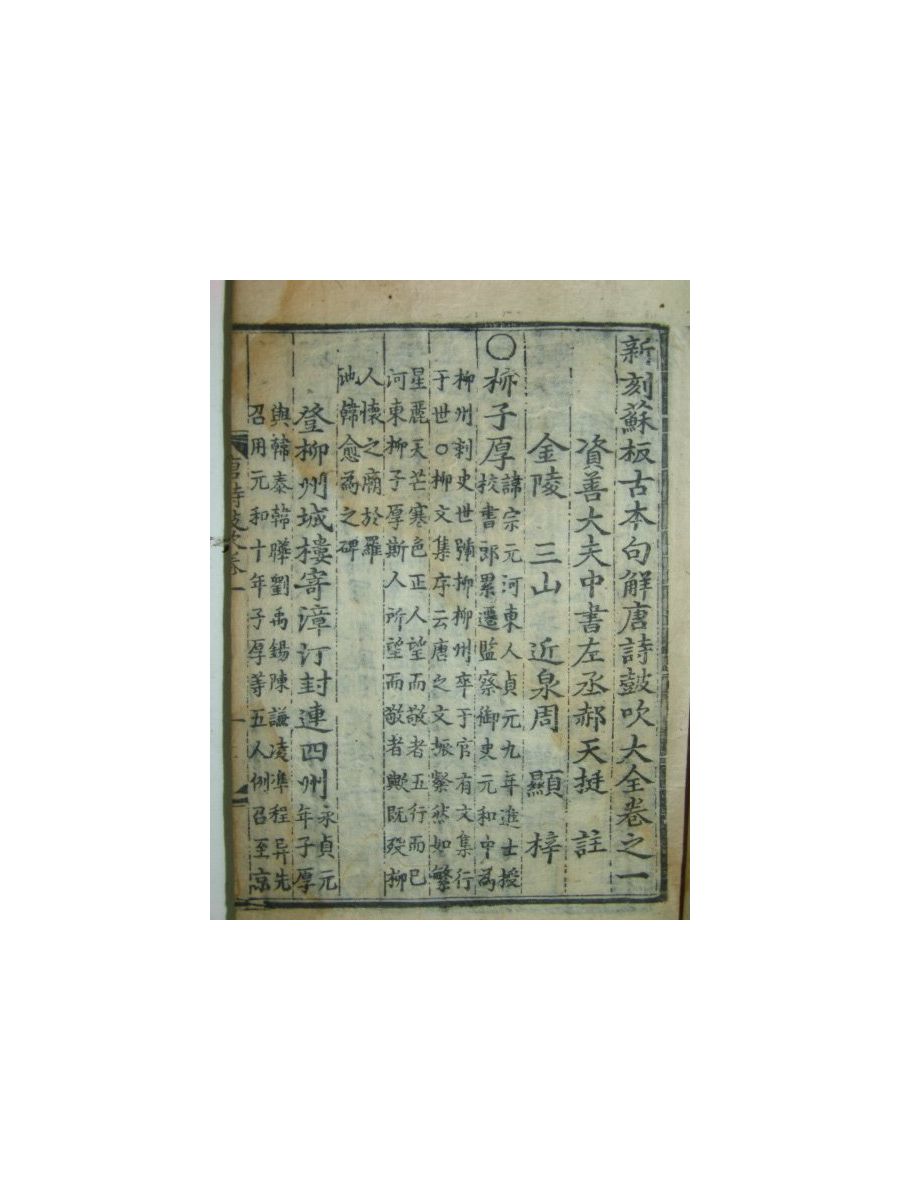 新刻蘇板古本句解唐詩鼓吹大全卷之一
資善大夫中書左丞郝天挺 註
金陵 三山 近泉周 顯 梓
○柳子厚
諱宗元河東人貞元九年進士授
校書郎累遷監察御史元和中為
柳州刺史世號柳柳州卒于官有文集行
于世○柳文集序云唐之文振粲然如繁
星麗天芒寒色正人望而敬者五行而已
河東柳子厚斯人所望而敬者歟既歿柳
人懷之廟於羅
池韓愈為之碑
登柳州城樓寄漳汀封連四州
永貞元
年子厚
與韓泰韓曄劉禹錫陳謙凌準程异先
召用元和十年子厚等五人例召至京
唐詩鼓吹卷一